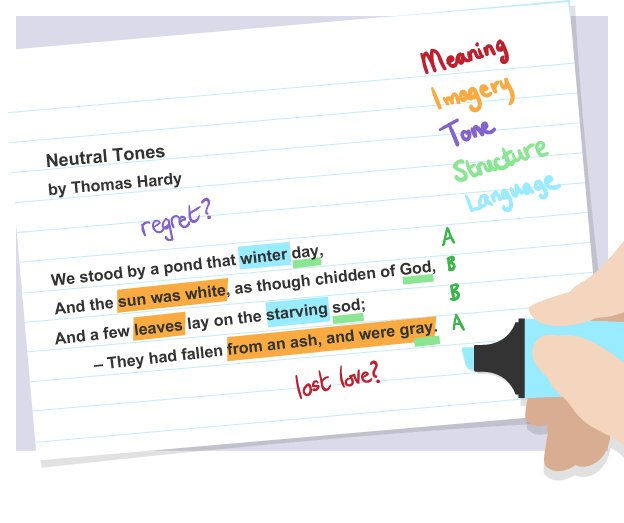 Meaning
Imagery
Tone
Structure
Language
Neutral Tones
by Thomas Hardy
regret?
We stood by a pond that winter day, A
And the sun was white, as though chidden of God, B
And a few leaves lay on the starving sod; B
– They had fallen from an ash, and were gray. A
lost love?